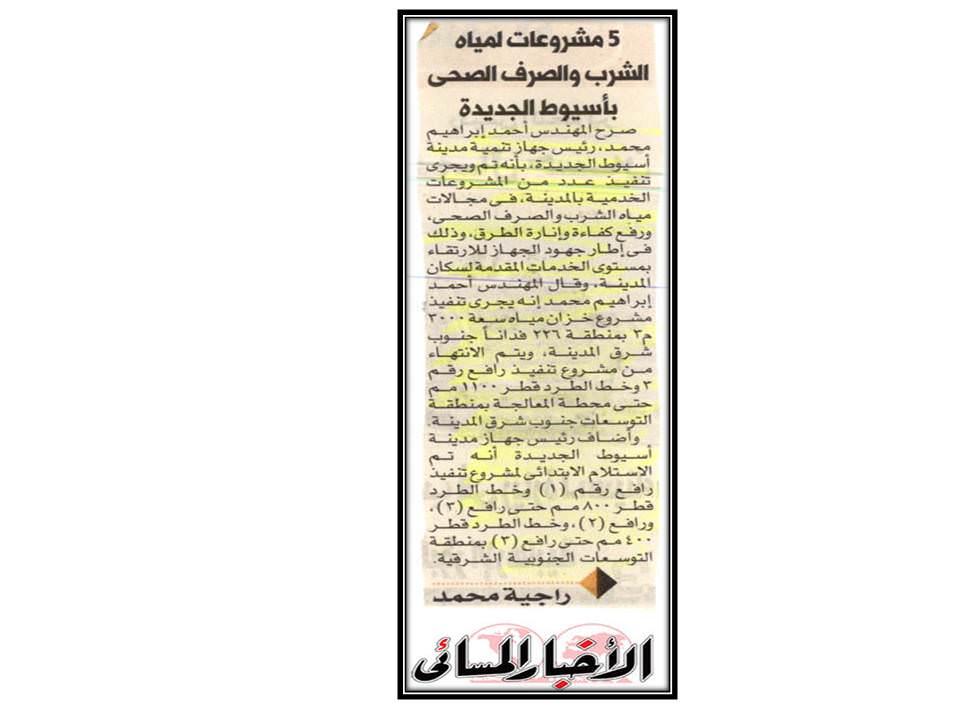 5 مشروعات لمياه
الشرب والصرف الصحى
بأسيوط الجديدة
صرح المهندس أحمد إبراهيم
محمد، رئيس جهاز تنمية مدينة
أسيوط الجديدة، بأنه تم ويجرى
تنفيذ عدد من المشروعات
الخدمية بالمدينة، فى مجالات
مياه الشرب والصرف الصحى،
ورفع كفاءة وإنارة الطرق، وذلك
فى إطار جهود الجهاز للارتقاء
بمستوى الخدمات المقدمة لسكان
المدينة، وقال المهندس أحمد
إبراهيم محمد إنه يجرى تنفيذ
مشروع خزان مياه سعة ٣٠٠٠
م٣ بمنطقة ٢٢٦ فداناً جنوب
شرق المدينة، ويتم الانتهاء
من مشروع تنفيذ رافع رقم
٣ وخط الطرد قطر ١١٠٠ مم
حتى محطة المعالجة بمنطقة
التوسعات جنوب شرق المدينة.
وأضاف رئيس جهاز مدينة
أسيوط الجديدة أنه تم
الاستلام الابتدائى لمشروع تنفيذ
رافع رقم (١) وخط الطرد
قطر ٨٠٠ مم حتى رافع (٣)،
ورافع (٢)، وخط الطرد قطر
٤٠٠ مم حتى رافع (٣) بمنطقة
التوسعات الجنوبية الشرقية.
راجية محمد
الأخبار المسائى